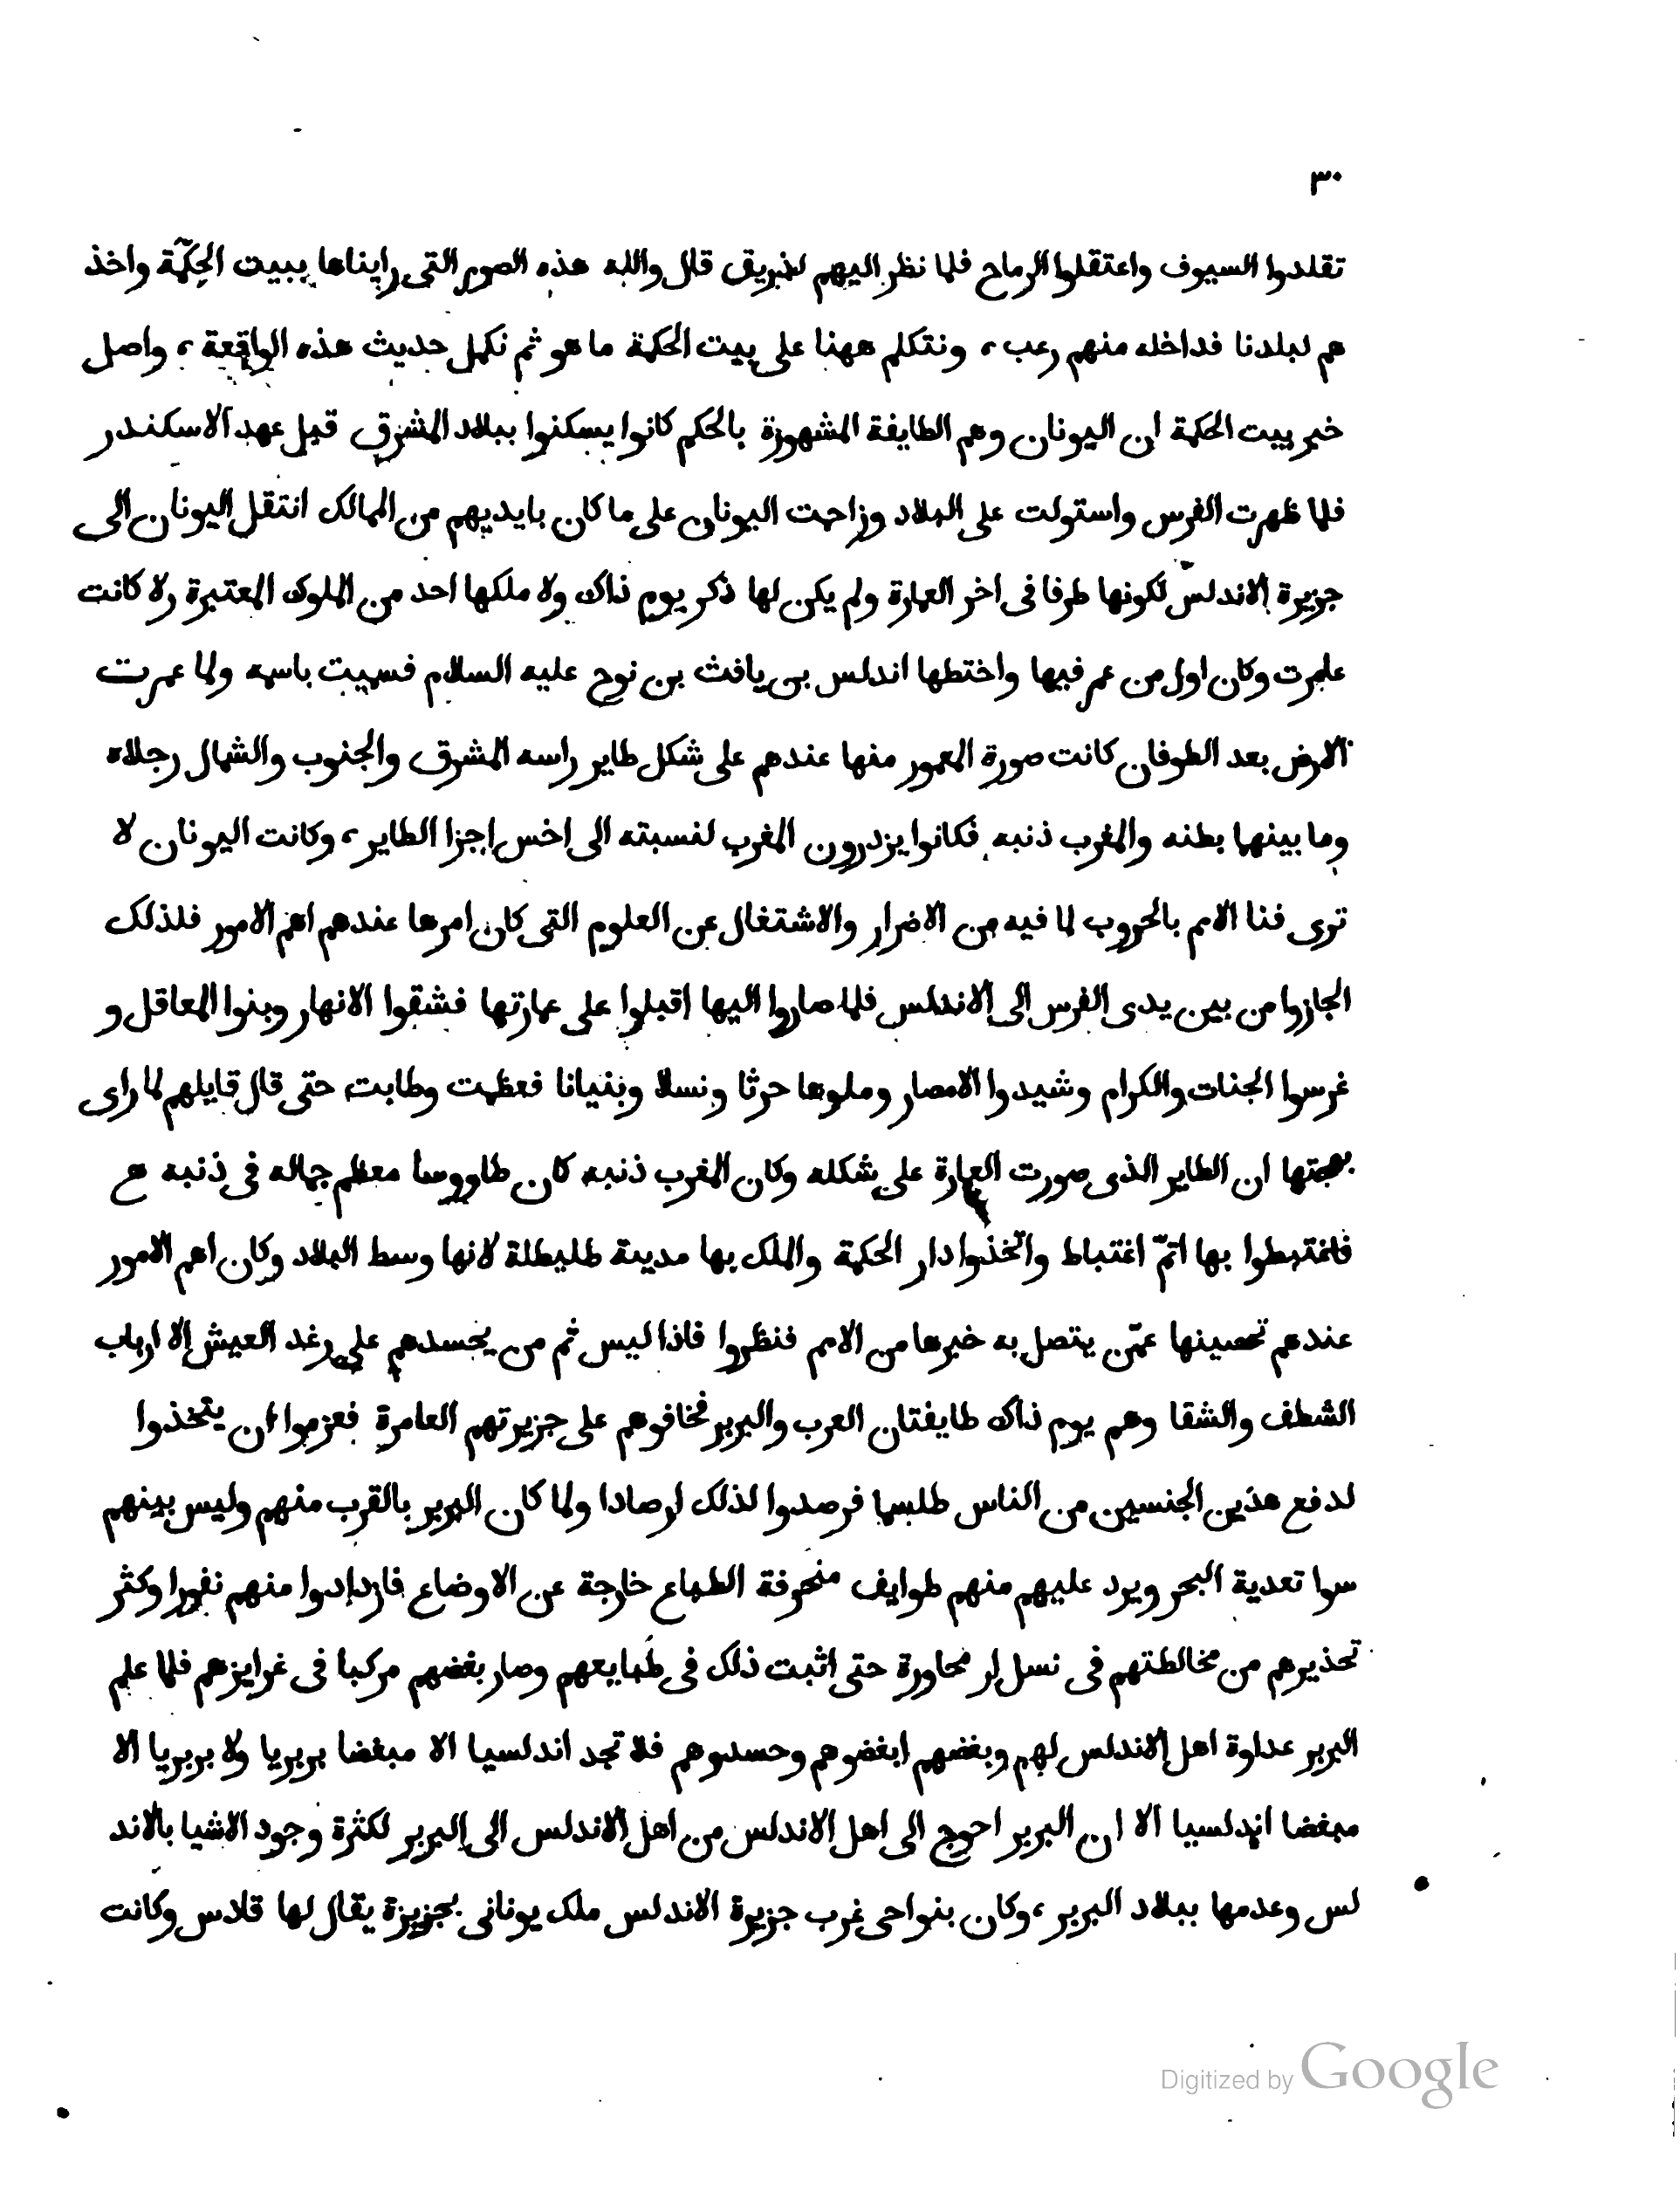 ٣٠
تقلدوا السيوف واعتقلوا الرماح فلما نظر اليهم لذريق قال والله هذه الصور التى رايناها ببيت الحكمة واخذ
هم لبلدنا فداخله منهم رعب، ونتكلم ههنا على بيت الحكمة ما هو ثم نكمل حديث هذه الواقعة، واصل
خبر بيت الحكمة ان اليونان وهم الطايفة المشهورة بالحكم كانوا يسكنوا ببلاد المشرق قبل عهد الاسكندر
فلما ظهرت الفرس واستولت على البلاد وزاحمت اليونان على ما كان بايديهم من الممالك انتقل اليونان الى
جزيرة الاندلس لكونها طرفا فى اخر العمارة ولم يكن لها ذكر يوم ذاك ولا ملكها احد من الملوك المعتبرة ولا كانت
عامرت وكان اول من عمر فيها واختطها اندلس بن يافث بن نوح عليه السلام فسميت باسمه ولما عمرت
الارض بعد الطوفان كانت صورة المعمور منها عندهم على شكل طاير راسه المشرق والجنوب والشمال رجلاه
وما بينهما بطنه والمغرب ذنبه فكانوا يزدرون المغرب لنسبته الى اخس اجزا الطاير، وكانت اليونان لا
ترى فنا الامم بالحروب لما فيه من الاضرار والاشتغال عن العلوم التى كان امرها عندهم اهم الامور فلذلك
انجازوا من بين يدى الفرس الى الاندلس فلما صاروا اليها اقبلوا على عمارتها فشقوا الانهار وبنوا المعاقل و
غرسوا الجنات والكرام وشيدوا الامصار وملوها حرثا ونسلا وبنيانا فعظمت وطابت حتى قال قايلهم لما راى
بهجتها ان الطاير الذى صورت العمارة على شكله وكان المغرب ذنبه كان طاووسا معظم جماله فى ذنبه ح
فاغتبطوا بها اتمّ اغتباط واتخذوا دار الحكمة والملك بها مدينة طليطلة لانها وسط البلاد وكان اهم الامور
عندهم تحصينها عمّن يتصل به خبرها من الامم فنظروا فاذا ليس ثم من يحسدهم على رغد العيش الا ارباب
الشظف والشقا وهم يوم ذاك طايفتان العرب والبربر فخافوهم على جزيرتهم العامرة فعزموا ان يتخذوا
لدفع هذين الجنسين من الناس طلسما فرصدوا لذلك ارصادا ولما كان البربر بالقرب منهم وليس بينهم
سوا تعدية البحر ويرد عليهم منهم طوايف منحرفة الطباع خارجة عن الاوضاع فازدادوا منهم نفورا وكثر
تحذيرهم من مخالطتهم فى نسل او محاورة حتى اثبت ذلك فى طبايعهم وصار بغضهم مركبا فى غرايزهم فلما علم
البربر عداوة اهل الاندلس لهم وبغضهم ابغضوهم وحسدوهم فلا تجد اندلسيا الا مبغضا بربريا ولا بربريا الا
مبغضا اندلسيا الا ان البربر احوج الى اهل الاندلس من اهل الاندلس الى البربر لكثرة وجود الاشيا بالاند
لس وعدمها ببلاد البربر، وكان بنواحى غرب جزيرة الاندلس ملك يونانى بجزيزة يقال لها قلادس وكانت
Digitized by Google